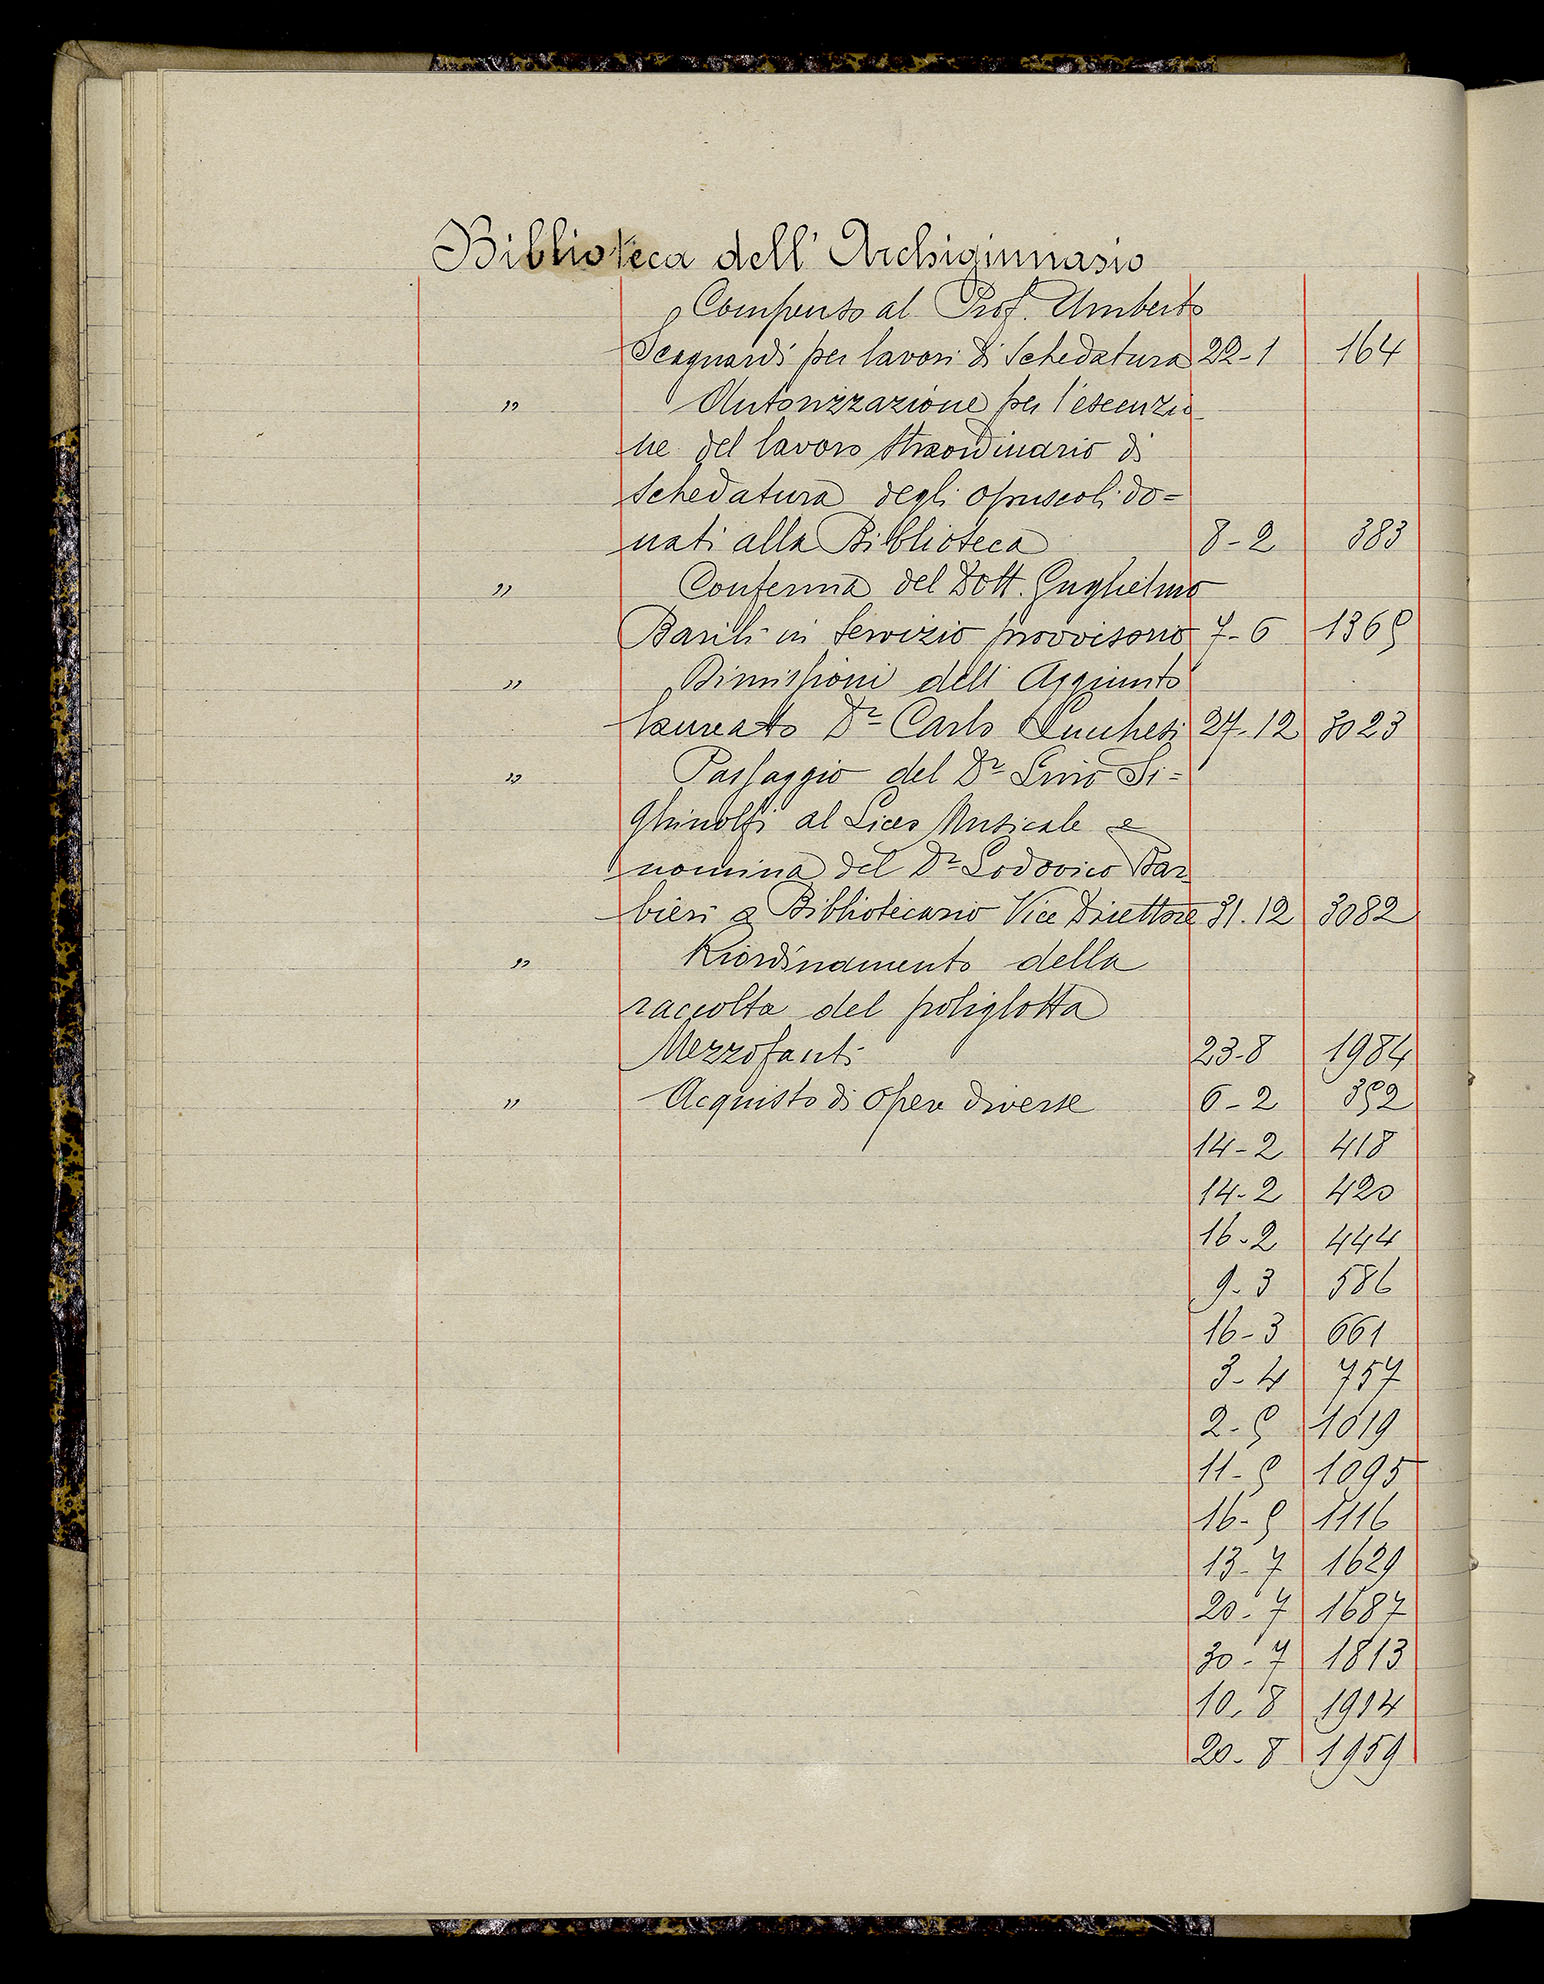 Biblioteca dell' Archiginnasio
Compenso al Prof. Umberto
Scagnardi per lavori di schedatura 22-1 164
" Autorizzazione per l'esecuzio-
ne del lavoro straordinario di
schedatura degli opuscoli do=
nati alla Biblioteca 8-2 383
" Conferma del Dott. Guglielmo
Barili in servizio provvisorio 7-6 1365
" Dimissioni dell'Aggiunto
laureato Dr Carlo Lucchesi 27-12 3023
" Passaggio del Dr Lino Si=
ghinolfi al Liceo Musicale e
nomina del Dr Lodovico Bar=
bieri a Bibliotecario Vice Direttore 31.12 3082
" Riordinamento della
raccolta del poliglotta
Mezzofanti 23-8 1984
" Acquisto di opere diverse 6-2 352
14-2 418
14-2 420
16-2 444
9-3 586
16-3 661
3-4 757
2-5 1019
11-5 1095
16-5 1116
13-7 1629
20-7 1687
30-7 1813
10.8 1914
20-8 1959